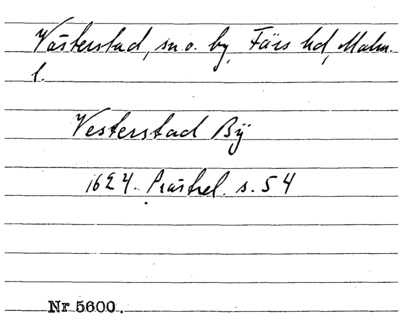 Västerstad, sn o. by, Färs hd, Malm.
l.
Vesterstad Bÿ
1624. Prästrel. s. 54
Nr 5600.